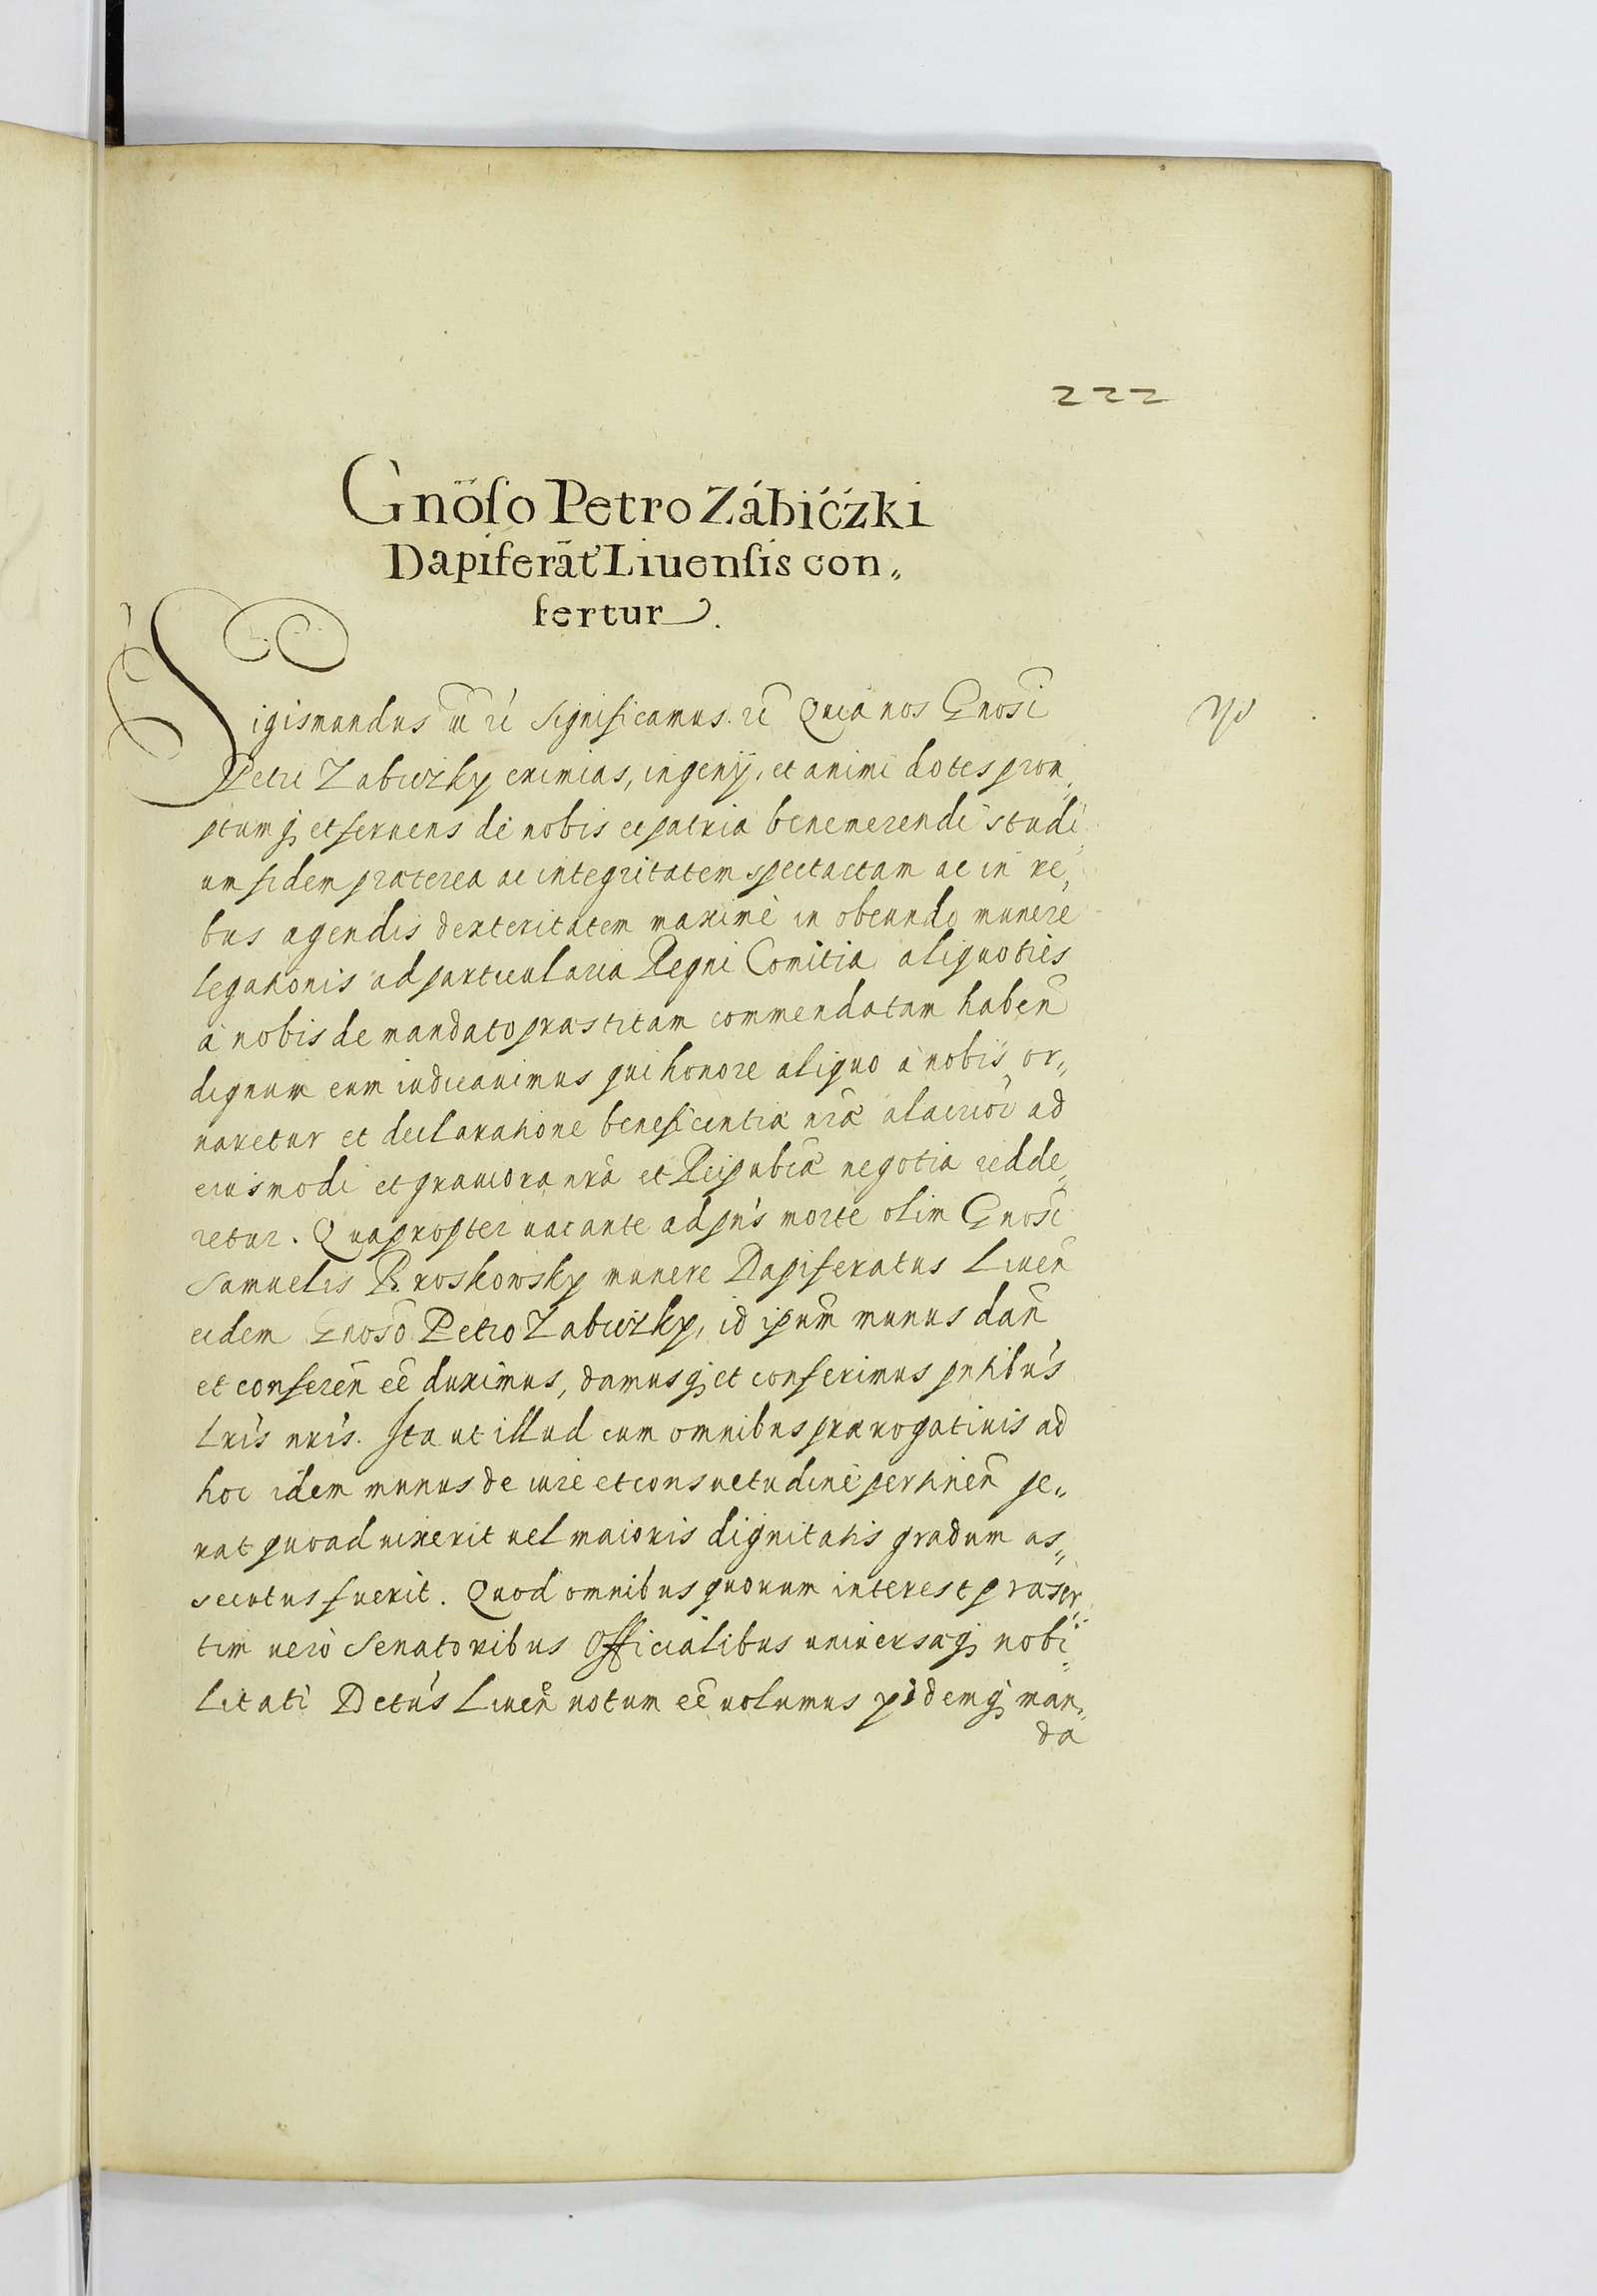 222
Gnöso Petro Zábićźki
Dapiferāt' Liuensis con„
fertur.
Sigismundus Significamus. Quia nos Gnosi
Petri Zabiczky eximias, ingenij, et animi dotes prom„
ptumq; et feruens de nobis et patria benemerendi studi„
um fidem præterea ac integritatem spectactam ac in re„
bus agendis dexteritatem maximè in obeundo munere
legationis ad particularia Regni Comitia aliquoties
à nobis demandato præstitam commendatam haben̄
dignum eum iudicauimus qui honore aliquo à nobis or„
naretur et declaratione beneficentiæ nr̃æ alacrior ad
eiusmodi et grauiora nr̃a et Reipubcæ negotia redde„
retur. Quapropter uacante ad pn's morte olim Gnosi
Samuelis Broskowsky munere Dapiferatus Liuen̄
eidem Gnoso Petro Zabiczky, id ipum̄ munus dan̄
et conferen̄ eē duximus, damusq; et conferimus pntibu's
Lris nris. Ita ut illud cum omnibus prærogatiuis ad
hoc idem munus de iure et consuetudine pertinen̄ ge„
rat quoad uixerit uel maioris dignitatis gradum as„
secutus fuerit. Quod omnibus quorum interest præser„
tim uerò Senatoribus Officialibus uniuersæq; nobi„
litati Dctu's Liuen̄ notum eē uolumus ijsdemq; man„
da